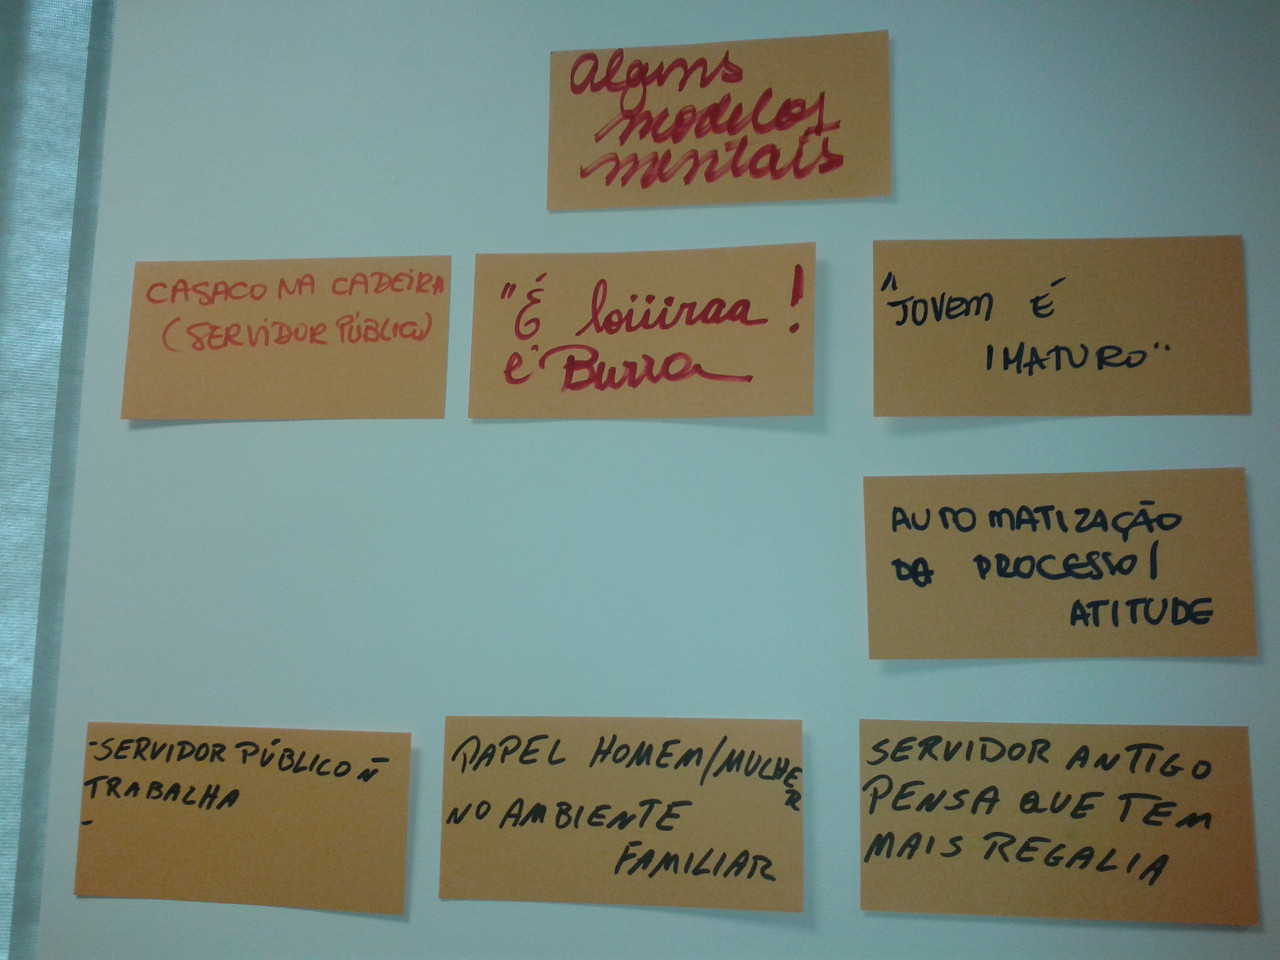 Alguns
modelos
mentais
CASACO NA CADEIRA
(SERVIDOR PÚBLICO)
"É loiiiraa!
é Burra
"JOVEM É
IMATURO"
AUTOMATIZAÇÃO
DE PROCESSO/
ATITUDE
-SERVIDOR PÚBLICO Ñ
TRABALHA
-
PAPEL HOMEM/MULHER
NO AMBIENTE
FAMILIAR
SERVIDOR ANTIGO
PENSA QUE TEM
MAIS REGALIA